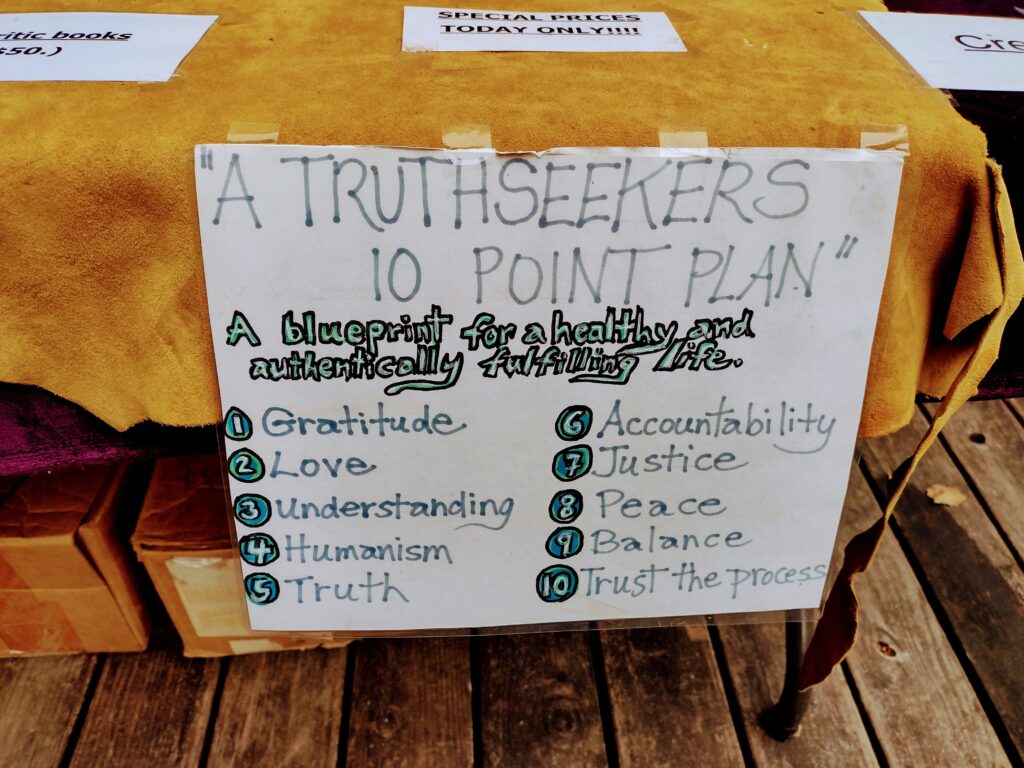 ritic books
$50.)
SPECIAL PRICES
TODAY ONLY!!!!
Cre
"A TRUTHSEEKERS
10 POINT PLAN"
A blueprint for a healthy and
authentically fulfilling life.
1 Gratitude
2 Love
3 Understanding
4 Humanism
5 Truth
6 Accountability
7 Justice
8 Peace
9 Balance
10 Trust the process